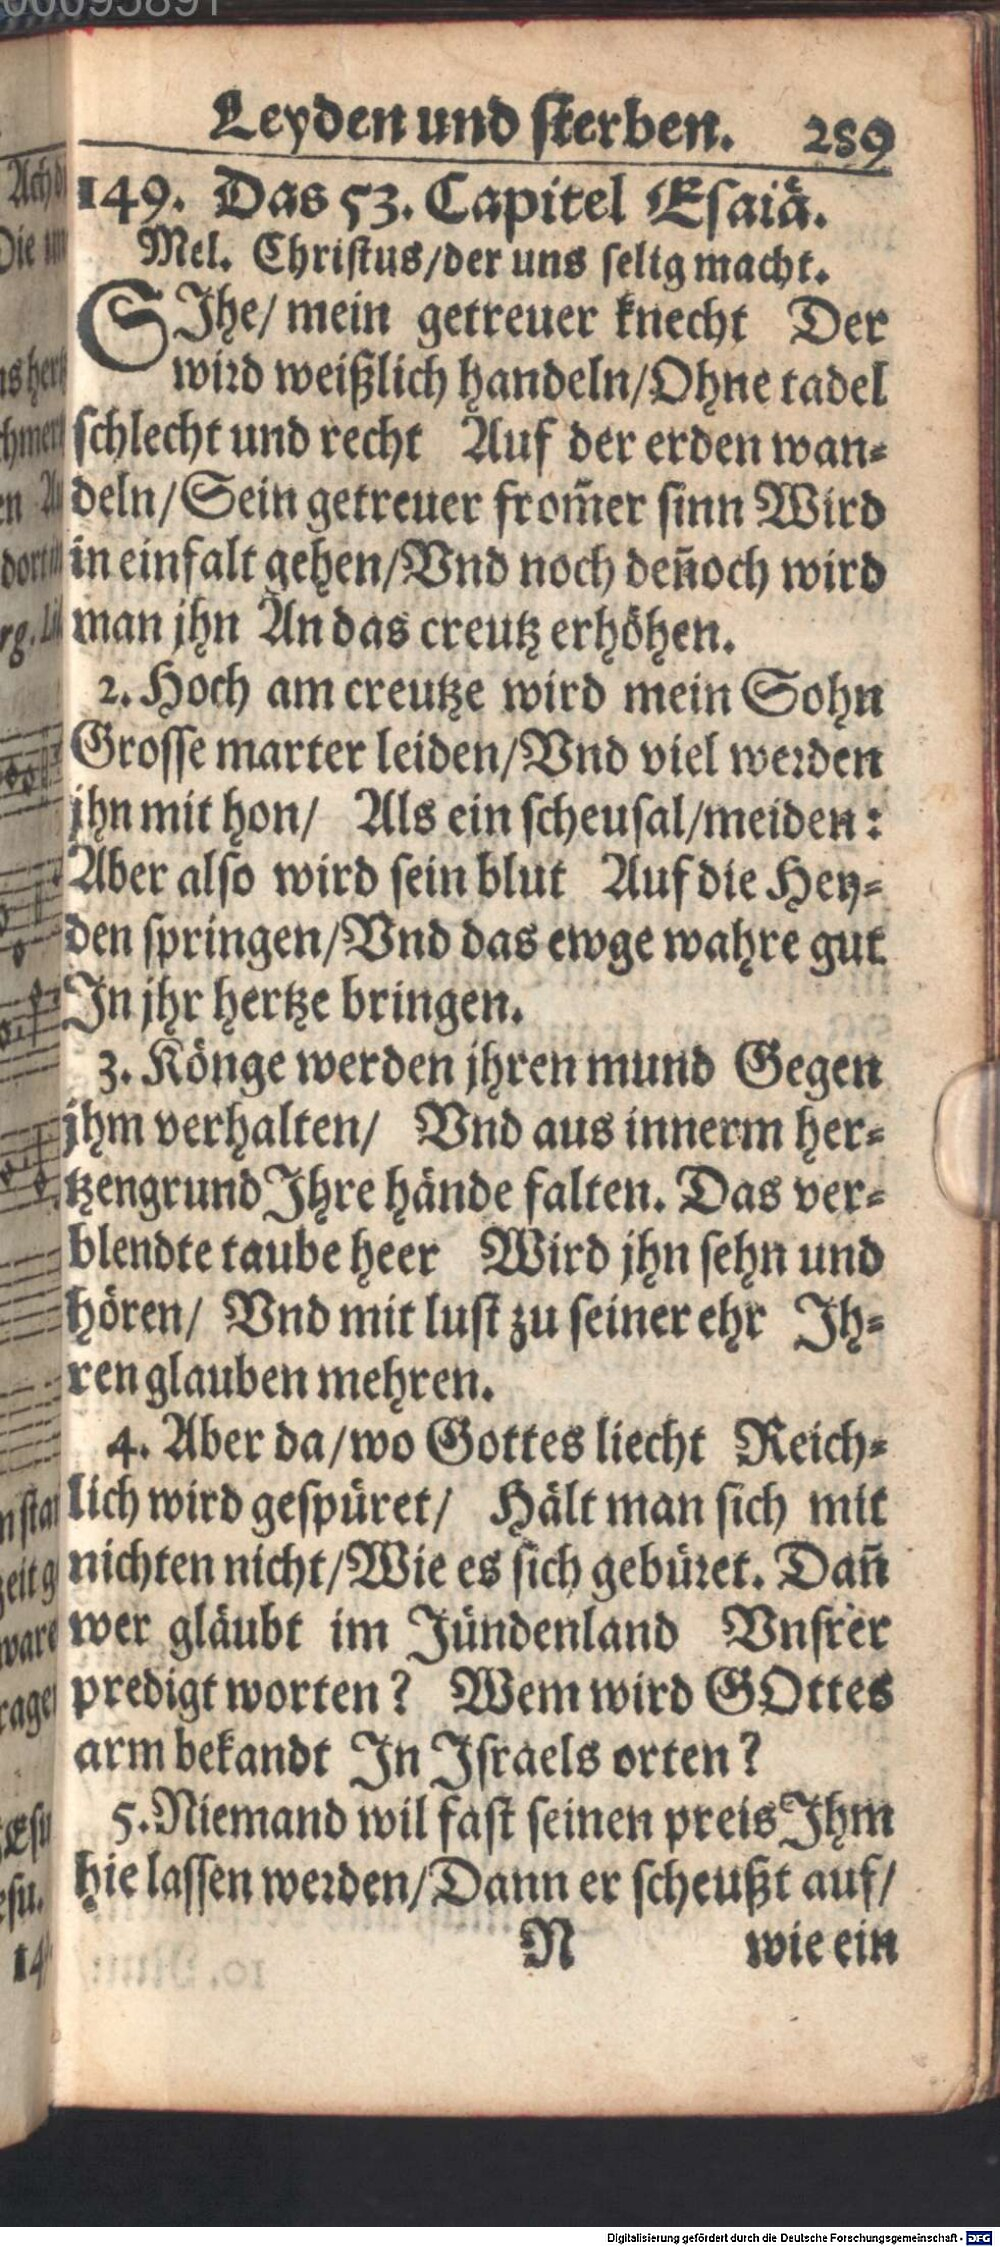 Leyden und sterben. 289
149. Das 53. Capitel Esaiä.
Mel. Christus/der uns selig macht.
SIhe/ mein getreuer knecht Der
wird weißlich handeln/Ohne tadel
schlecht und recht Auf der erden wan-
deln/Sein getreuer from̃er sinn Wird
in einfalt gehen/Vnd noch deñoch wird
man jhn An das creutz erhöhen.
2. Hoch am creutze wird mein Sohn
Grosse marter leiden/Vnd viel werden
jhn mit hon/ Als ein scheusal/meiden:
Aber also wird sein blut Auf die Hey-
den springen/Vnd das ewge wahre gut
In jhr hertze bringen.
3. Könge werden jhren mund Gegen
jhm verhalten/ Vnd aus innerm her-
tzengrund Ihre hände falten. Das ver-
blendte taube heer Wird jhn sehn und
hören/ Vnd mit lust zu seiner ehr Ih-
ren glauben mehren.
4. Aber da/wo Gottes liecht Reich-
lich wird gespüret/ Hält man sich mit
nichten nicht/Wie es sich gebüret. Dañ
wer gläubt im Jüdenland Vnsrer
predigt worten? Wem wird GOttes
arm bekandt In Israels orten?
5. Niemand wil fast seinen preis Ihm
hie lassen werden/Dann er scheußt auf/
N wie ein
Digitalisierung gefördert durch die Deutsche Forschungsgemeinschaft - DFG